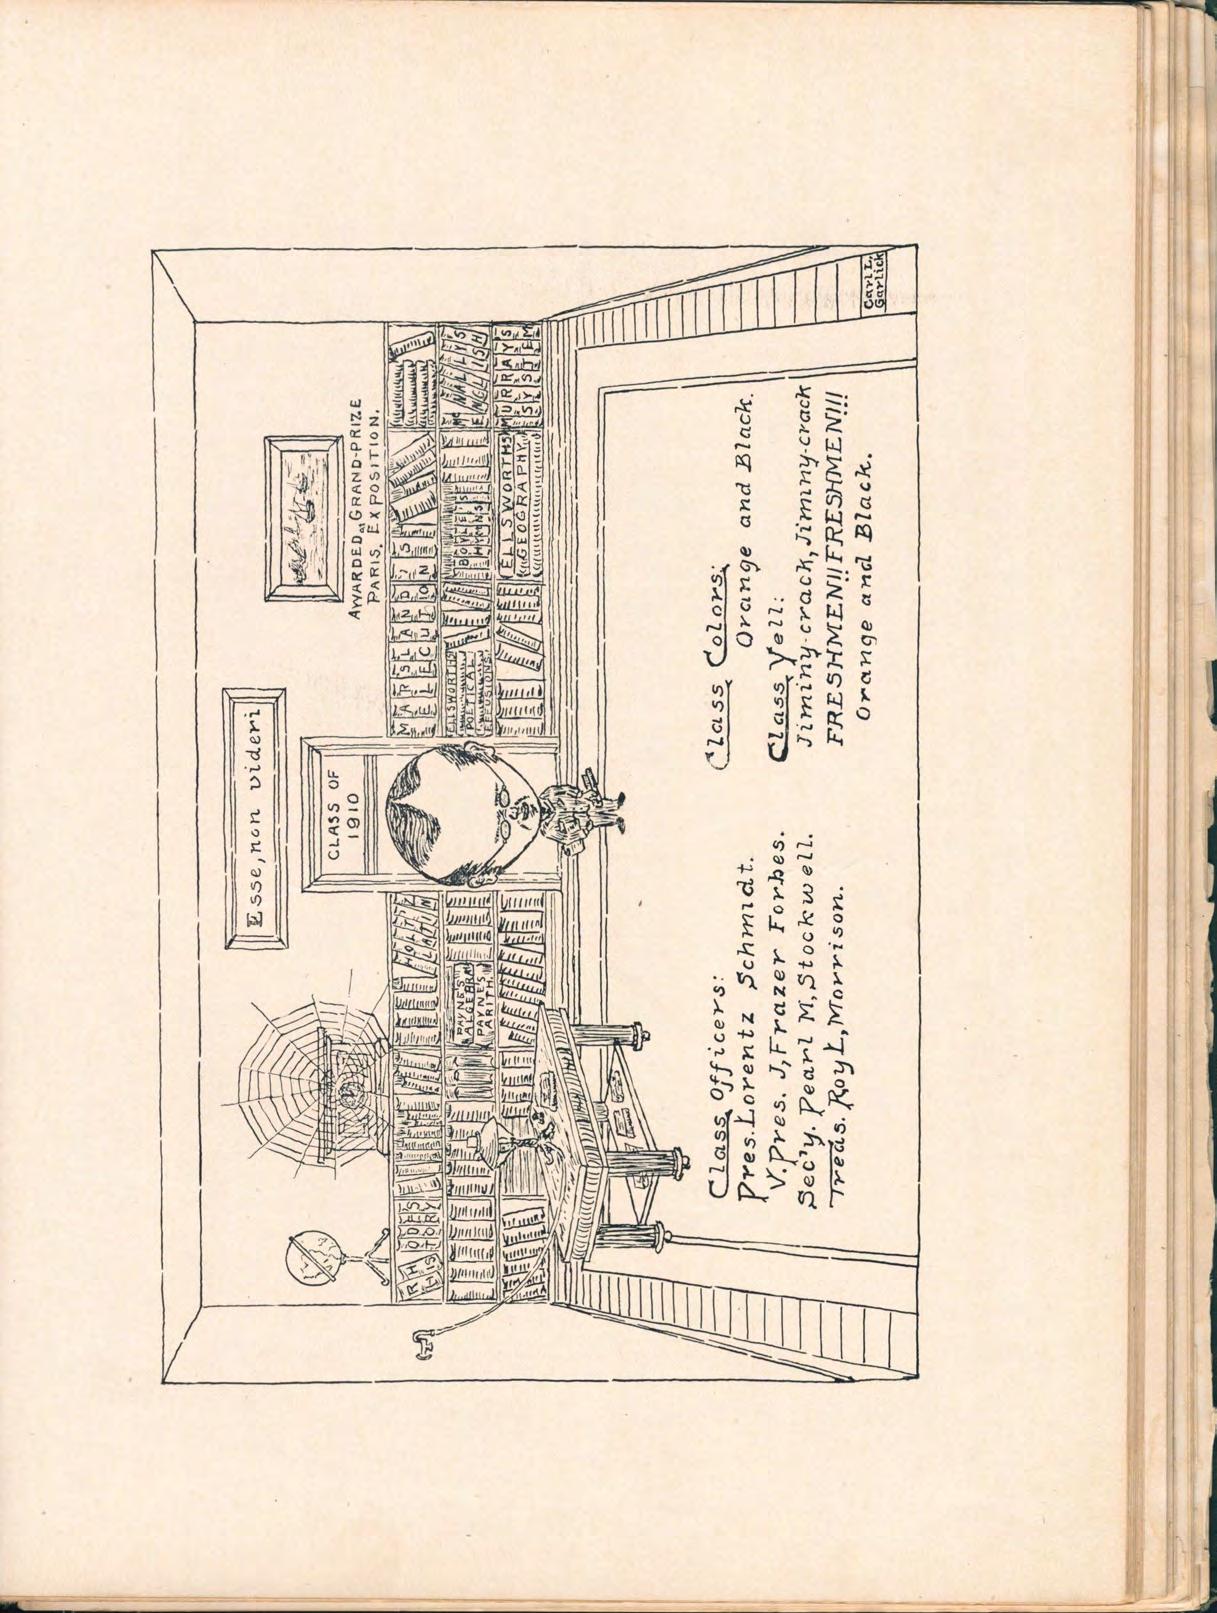 Esse, non videri
CLASS OF
1910
AWARDED GRAND-PRIZE
PARIS, EXPOSITION.
RHODES
HISTORY
HOLTZ
LATIN
PAYNE'S
ALGEBRA
PAYNE'S
ARITH.
MARSLAND'S
ELECUTION
ELLSWORTHS
POETICAL
EFFUSIONS
BOYLES
HYMNS
McNALLYS
ENGLISH
ELLSWORTHS
GEOGRAPHY
MURRAYS
SYSTEM
Class Officers:
Pres. Lorentz Schmidt.
V. Pres. J, Frazer Forbes.
Sec'y. Pearl M, Stockwell.
Treas. Roy L, Morrison.
Class Colors:
Orange and Black.
Class Yell:
Jiminy-crack, Jiminy-crack
FRESHMEN!! FRESHMEN!!!
Orange and Black.
Carl L,
Garlick